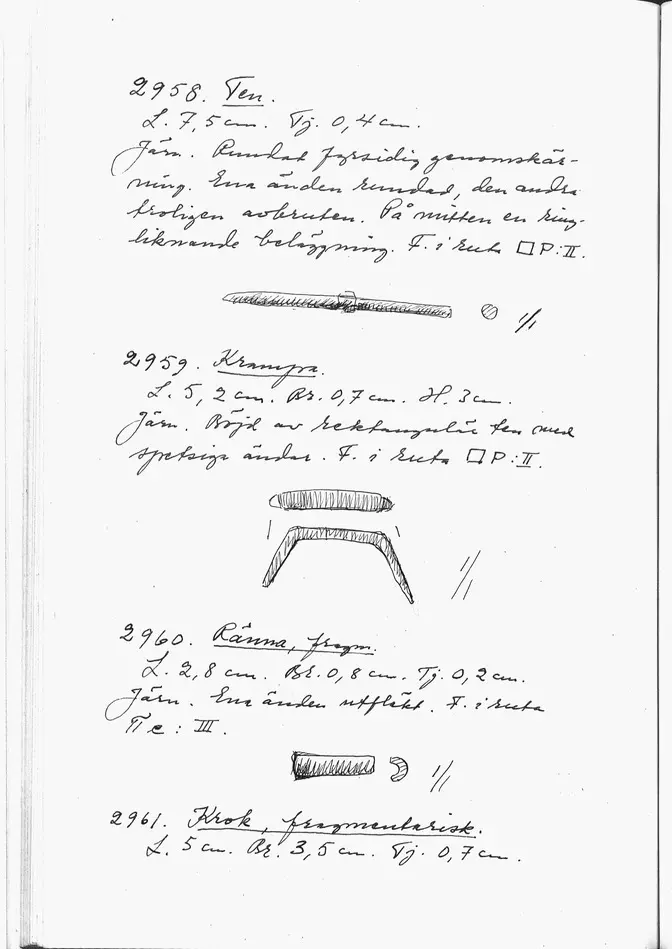 2958. Ten.
L. 7,5 cm. Tj. 0,4 cm.
Järn. Rundat fyrsidig genomskär-
ning. Ena änden rundad, den andra
troligen avbruten. På mitten en ring-
liknande beläggning. F. i ruta □ P:II.
1/1
2959. Krampa.
L. 5,2 cm. Br. 0,7 cm. H. 3 cm.
Järn. Böjd av rektangulär ten med
spetsiga ändar. F. i ruta □ P:II.
1/1
2960. Ränna, fragm.
L. 2,8 cm. Br. 0,8 cm. Tj. 0,2 cm.
Järn. Ena änden utfläkt. F. i ruta
c : III.
1/1
2961. Krok, fragmentarisk.
L. 5 cm. Br. 3,5 cm. Tj. 0,7 cm.